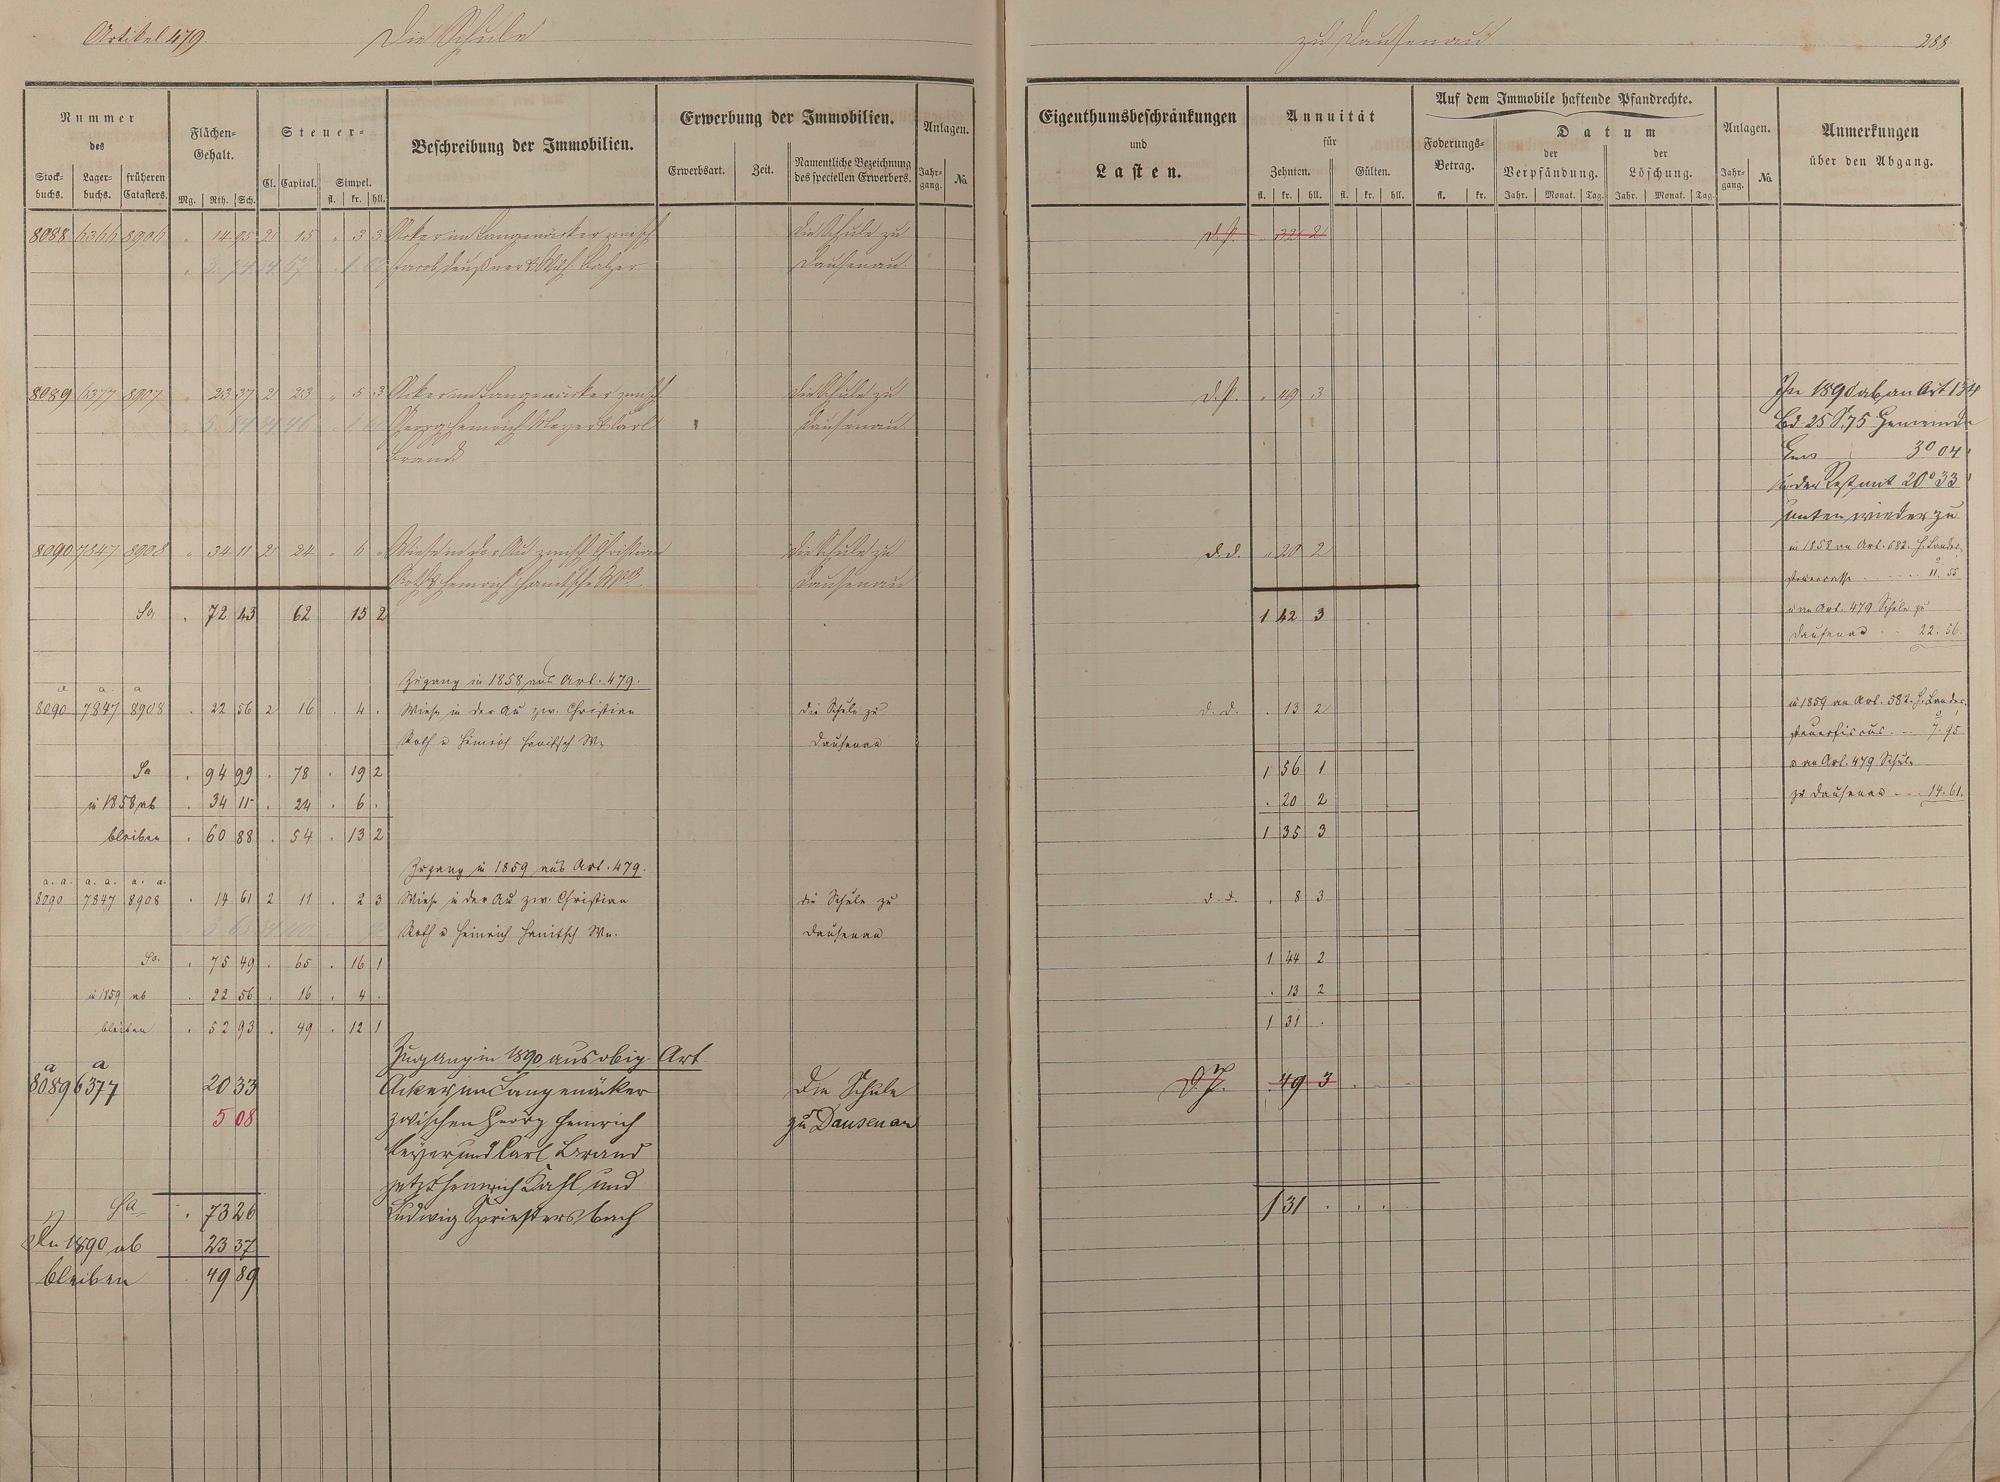 Artikel 479. Die Schule zu Dausenau 288.
Nummer
des
Stock-
buchs.
Lager-
buchs.
früheren
Catasters.
Flächen-
Gehalt.
Mg. Rth. Sch.
Steuer-
Cl. Capital. Simpel.
fl. kr. hll.
Beschreibung der Immobilien.
Erwerbung der Immobilien.
Erwerbsart. Zeit.
Namentliche Bezeichnung
des speciellen Erwerbers.
Anlagen.
Jahr-
gang.
No.
Eigenthumsbeschränkungen
und
Lasten.
Annuität
für
Zehnten. Gülten.
fl. kr. hll. fl. kr. hll.
Auf dem Immobile haftende Pfandrechte.
Foderungs-
Betrag.
fl. kr.
Datum
der
Verpfändung.
der
Löschung.
Jahr. Monat. Tag. Jahr. Monat. Tag.
Anlagen.
Jahr-
gang.
No.
Anmerkungen
über den Abgang.
8088 6366 8906 14 95 2 15 3 3 Acker im Langenäcker zwisch die Schule zu
Dausenau
8089 6377 8907 23 37 2 23 5 3 Acker im Langenäcker zwisch die Schule zu d.P. 49 3 In 1890 ab an Art 134
Georg Heinrich Meyer & Carl Dausenau Bd 25 S. 75 Gemeinde
Brand Ems 3° 04'
u der Rest mit 20° 33'
unten wieder zu
8090 7847 8908 34 11 2 24 6 Wiese in der Au zwisch Christian die Schule zu d.d. 20 2 in 1858 an Art. 682. H. Landes-
Dausenau 11. 55
Sa 72 43 62 15 2 1 42 3 u an Art. 479 Schule zu
Dausenau 22. 56.
Zugang in 1858 aus Art. 479.
a a a
8090 7847 8908 22 56 2 16 4 Wiese in der Au zw. Christian die Schule zu d.d. 13 2 in 1859 an Art. 582. H. Landes-
Roth u Heinrich Hanitsch We. Dausenau steuerfiscus 7. 95
Sa 94 99 78 19 2 1 56 1 u an Art. 479 Schule
in 1858 ab 34 11 24 6 20 2 zu Dausenau 14. 61.
bleiben 60 88 54 13 2 1 35 3
Zugang in 1859 aus Art. 479.
a. a. a. a. a. a.
8090 7847 8908 14 61 2 11 2 3 Wiese in der Au zw. Christian die Schule zu d.d. 8 3
Roth u Heinrich Hanitsch We. Dausenau
Sa. 75 49 65 16 1 1 44 2
in 1859 ab 22 56 16 4 13 2
bleiben 52 93 49 12 1 1 31
Zugang in 1890 aus obig. Art
a a
8089 6377 20 33 Acker im Langenäcker Die Schule d.P. 49 3
5 08 zwischen Georg Heinrich zu Dausenau
Meyer und Carl Brand
jetzt Heinrich Kahl und
Sa 73 26 Ludwig Spriestersbach 1 31
In 1890 ab 23 37
bleiben 49 89